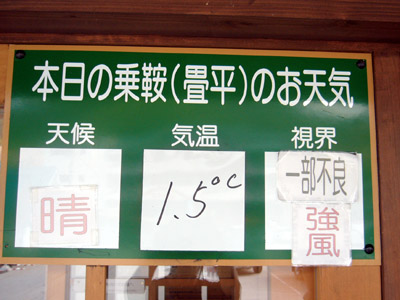 本日の乗鞍(畳平)のお天気
天候 気温 視界
晴 1.5°C 一部不良
強風